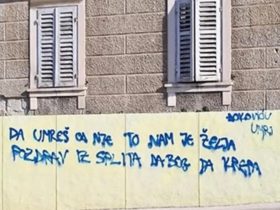 DA UMREŠ OD NJE TO NAM JE ŽELJA
POZDRAV IZ SPLITA DABOG DA KREPA
UMRI